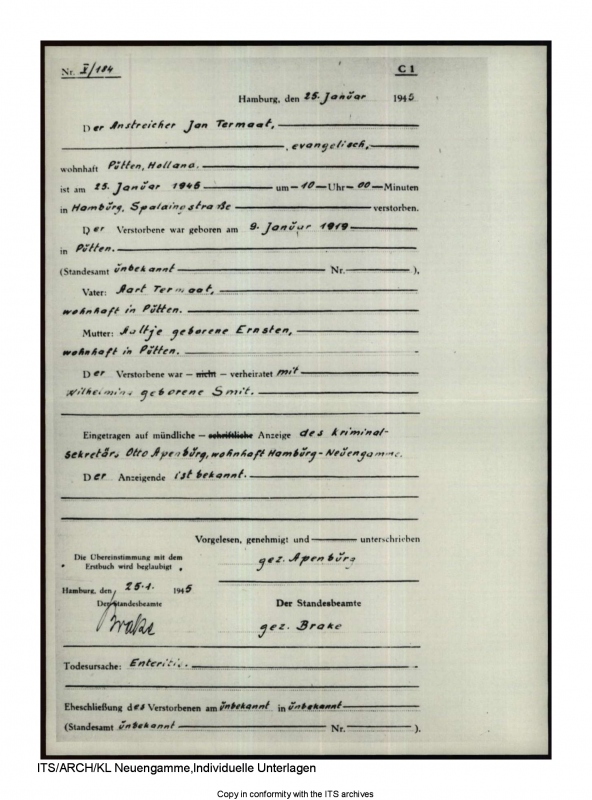 Nr. I/184 C 1
Hamburg, den 25. Januar 1945
Der Anstreicher Jan Termaat,
, evangelisch,
wohnhaft Pŭtten, Holland.
ist am 25. Janŭar 1945 um 10 Uhr 00 Minuten
in Hambŭrg, Spaldingstraße verstorben.
Der Verstorbene war geboren am 9. Janŭar 1919
in Pŭtten.
(Standesamt ŭnbekannt Nr. ),
Vater: Aart Termaat,
wohnhaft in Pŭtten.
Mutter: Aaltje geborene Ernsten,
wohnhaft in Pŭtten.
Der Verstorbene war – nicht – verheiratet mit
Wilhelmina geborene Smit.
Eingetragen auf mündliche – schriftliche Anzeige des Kriminal-
sekretärs Otto Apenbŭrg, wohnhaft Hambŭrg-Neŭengamme.
Der Anzeigende ist bekannt.
Vorgelesen, genehmigt und unterschrieben
Die Übereinstimmung mit dem
Erstbuch wird beglaubigt.
gez. Apenbŭrg
Hamburg, den 25.1. 1945
Der Standesbeamte Der Standesbeamte
Brake gez. Brake
Todesursache: Enteritis.
Eheschließung des Verstorbenen am ŭnbekannt in ŭnbekannt
(Standesamt ŭnbekannt Nr. ).
ITS/ARCH/KL Neuengamme,Individuelle Unterlagen
Copy in conformity with the ITS archives